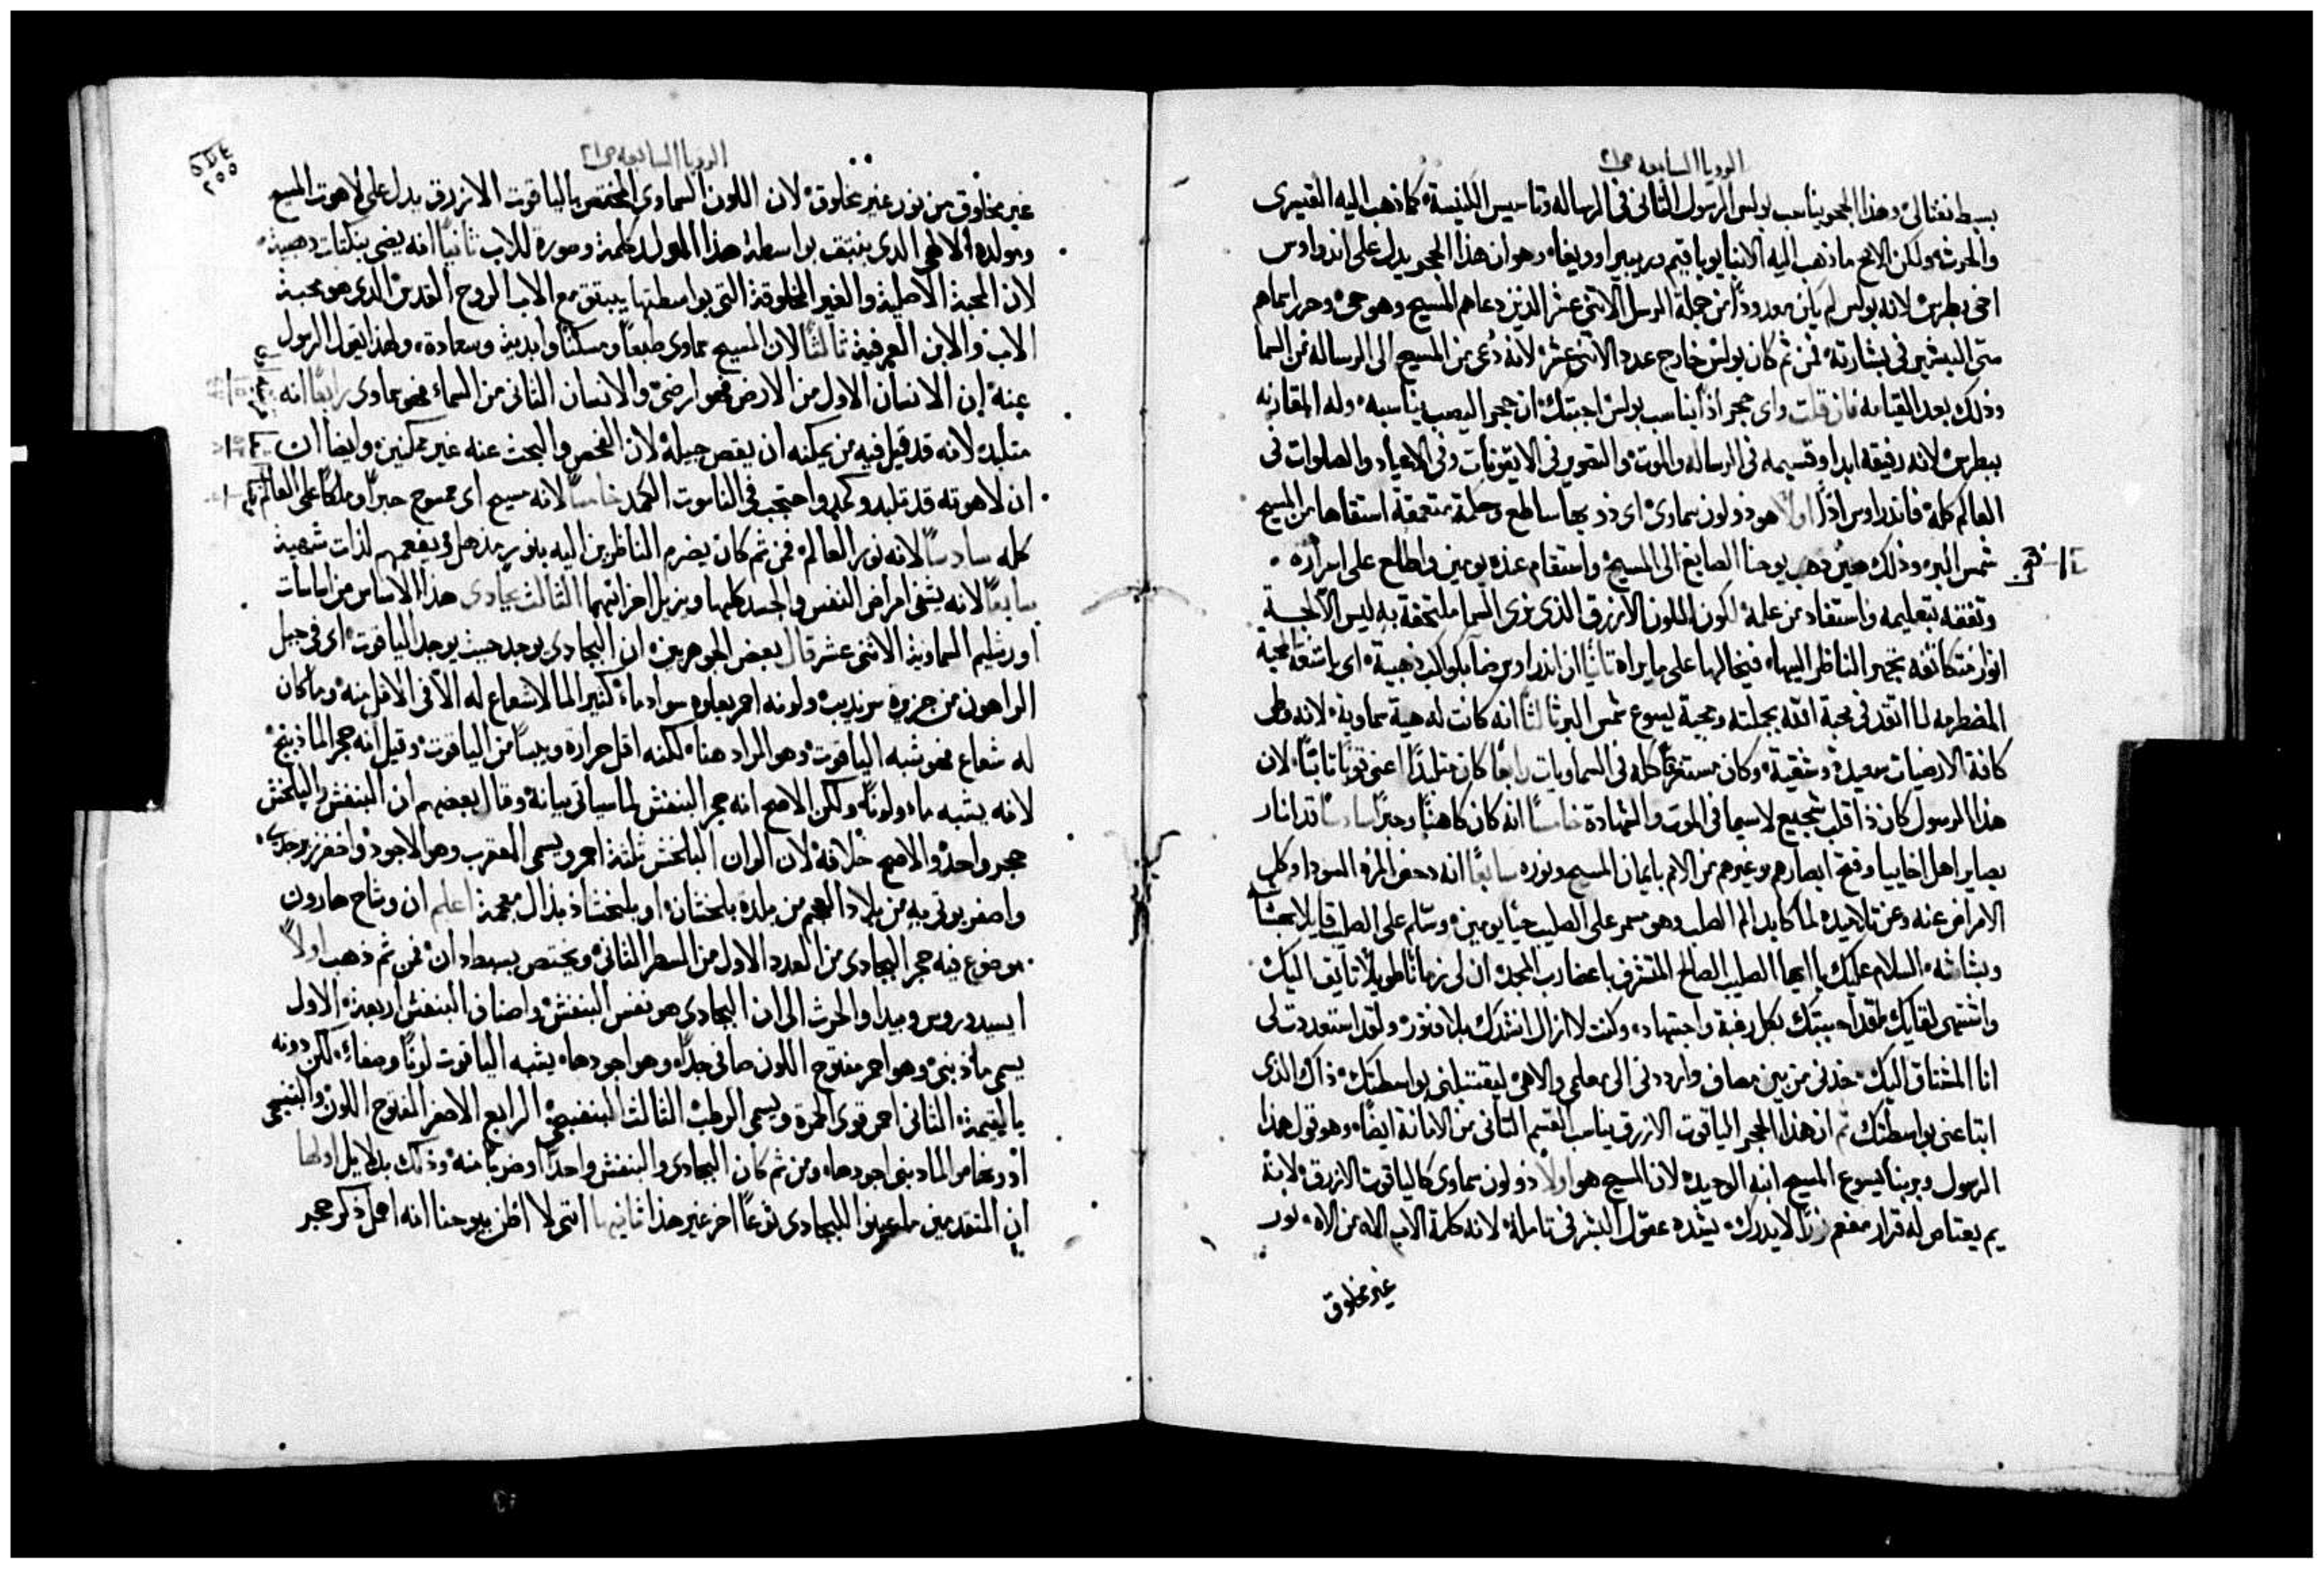 الرويا السابعه ص٢١
بسبط نفتالى وهذا الحجر يناسب بولس الرسول الثانى فى الرساله وتاسيس الكنيسة كما ذهب اليه القيسرى
والحرث ولكن الاصح ما ذهب اليه الانبا يوباقيم وريبيرا وويغا وهو ان هذا الحجر يدل على اندراوس
اخى بطرس لانه بولس لم يكن معدودًا من جملة الرسل الاثنى عشر الذين دعاهم المسيح وهو حى وحرر اسماهم
متى البشير فى بشارته فمن ثم كان بولس خارج عدد الاثنى عشر لانه دُعى من المسيح الى الرساله من السما
وذلك بعد القيامه فان قلت واى حجر اذًا يناسب بولس اجبتك ان حجر اليصب يناسبه وله المقارنه
ببطرس لانه رفيقه ابدا وقسيمه فى الرساله والموت والتصوير فى الايقونات وفى الاعياد والصلوات فى
العالم كله فاندراوس اذًا اولًا هو ذو لون سماوى اى ذو بها ساطع وحكمة متعمقة استقاها من المسيح
شمس البر وذلك حين ذهب يوحنا الصابغ الى المسيح واستقام عنده يومين واطلع على اسراره
وتفقه بتعليمه واستفاد من علمه لكون اللون الازرق الذى نرى السما ملتحفة به ليس الا لجة
انوار متكاثفه تبهر الناظر اليها فيخالها على ما يراه ثانيًا ان اندراوس ضا بكواكب ذهبية اى باشعة المحبة
المضطرمه لما اتقد فى محبة الله بجملته ومحبة يسوع شمس البر ثالثًا انه كانت له هيبة سماوية لانه وطى
كافة الارضيات سعيدة وشقية وكان مستغرقًا كله فى السماويات رابعًا كان متلبدًا اعنى قويًا ثابتًا لان
هذا الرسول كان ذا قلب شجيع لاسيما فى الموت والشهادة خامسًا انه كان كاهنًا وحبرًا سادسًا قد انار
بصاير اهل اخاييا وفتح ابصارهم وغيرهم من الامم بايمان المسيح ونوره سابعًا انه دحض المرة السودا وكل
الامراض عنه وعن تلاميذه لما كابد الم الصلب وهو مسمر على الصليب حيًا يومين وسلم على الصليب قايلا بهشاشة
وبشاشه السلام عليك يا ايها الصليب الصالح المتشرف باعضا رب المجد ان لى زمانًا طويلًا تايق اليك
واشتهى لقايك لقد احببتك بكل رغبة واجتهاد وكنت لا ازال انشدك بلا فتور ولقد استعددت لى
انا المشتاق اليك خذنى من بين مصاف وارددنى الى معلمى والاهى ليقتبلنى بواسطتك ذاك الذى
ابتاعنى بواسطتك ثم ان هذا الحجر الياقوت الازرق يناسب القسم الثانى من الامانة ايضًا وهو قول هذا
الرسول وبربنا يسوع المسيح ابنه الوحيد لان المسيح هو اولًا ذو لون سماوى كالياقوت الازرق لانه
يم يعتاص له قرار مفعم لا يدرك يشده عقول البشر فى تامله لانه كلمة الاب اله من الاه نور
غير مخلوق
الرويا السابعه ص٢١
٢٥٥
غير مخلوق من نور غير مخلوق لان اللون السماوى المختص بالياقوت الازرق يدل على لاهوت المسيح
ومولده الالهى الذى ينبثق بواسطة هذا المولد كلمة وصورة للاب ثانيًا انه يضى بنكتات دهبية
لان المحبة الاصلية والغير المخلوقة التى بواسطتها ينبثق مع الاب الروح القدس الذى هو محبة
الاب والابن العرفية ثالثًا لان المسيح سماوى طبعًا ومسكنًا وابدية وسعادة ولهذا يقول الرسول
عنه ان الانسان الاول من الارض فهو ارضى والانسان الثانى من السماء فهو سماوى رابعًا انه
متلبد لانه قد قيل فيه من يمكنه ان يقص جيله لان الفحص والبحث عنه غير ممكنين وايضا ان
ان لاهوته قد تلبد وكمد واحتجب فى الناسوت الكمد خامسًا لانه مسيح اى ممسوح حبرًا وملكًا على العالم
كله سادسًا لانه نور العالم فمن ثم كان يضرم الناظرين اليه بنور مذهل ويفعمهم لذات شهية
سابعًا لانه يشفى امراض النفس والجسد كلها ويزيل احزانهما الثالث بجادى هذا الاساس من اساسات
اورشليم السماوية الاثنى عشر قال بعض الجوهريين ان البجادى يوجد حيث يوجد الياقوت اى فى جبل
الراهون من جزيرة سرنديب ولونه احمر يعلوه سواد ماء كثير الما لا شعاع له الا فى الاقل منه وما كان
له شعاع فهو شبه الياقوت وهو المراد هنا لكنه اقل حرارة ويبسًا من الياقوت وقيل انه حجر الماذبنج
لانه يشبه ماء ولونًا ولكن الاصح انه حجر البنفش لما سياتى بيانه وقال بعضهم ان البنفش والبلخش
حجر واحد والاصح خلافه لان الوان البلخش ثلثة احمر ويسمى المعقرب وهو الاجود واخضر زبرجدى
واصفر يوتى به من بلاد العجم من بلدة بلخشان او بلخشاذ بذال معجمة اعلم ان وشاح هارون
موضوع فيه حجر البجادى من العدد الاول من السطر الثانى ويختص بسبط دان فمن ثم ذهب اولًا
ايسيدوروس وبيدا والحرث الى ان البجادى هو نفس البنفش واصناف البنفش اربعة الاول
يسمى ماذبنى وهو احمر مفتوح اللون صافى جدًا وهو اجودها يشبه الياقوت لونًا وصفاء لكن دونه
بالقيمة الثانى احمر قوى الحمرة ويسمى الرطب الثالث البنفسجى الرابع الاصفر المفتوح اللون والبنفسجى
ادونها والماذبنى اجودها ومن ثم كان البجادى والبنفش واحدًا وضربًا منه وذلك بدلايل اولها
ان المتقدمين ما عينوا للبجادى نوعًا اخر غير هذا ثانيها اننى لا اظن بيوحنا انه اهمل ذكر حجر